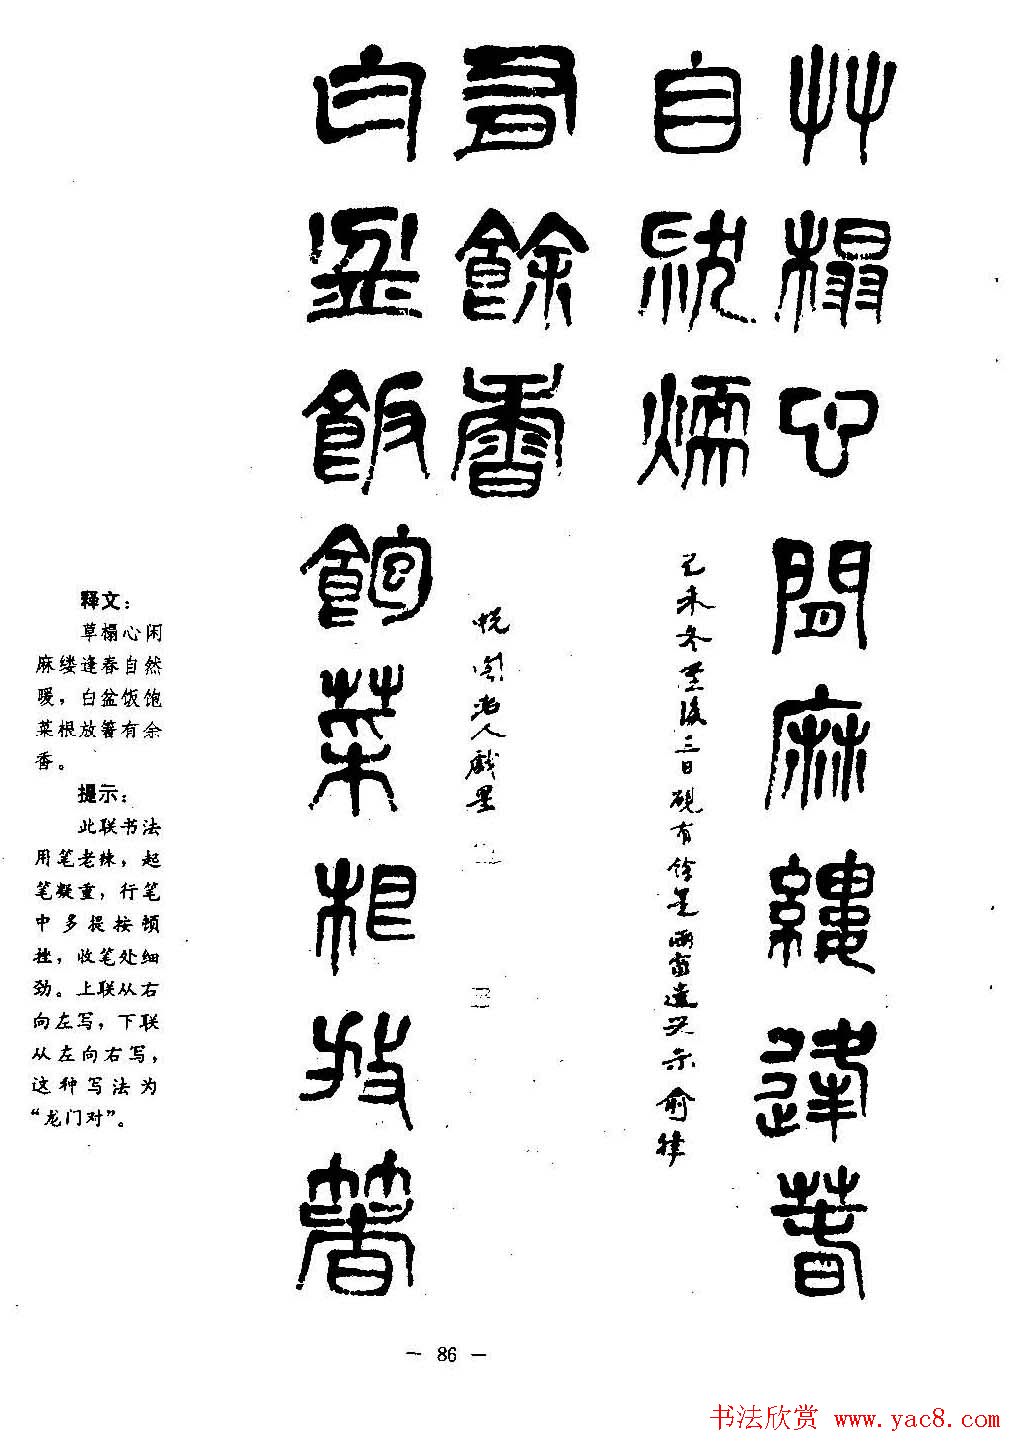 艸榻心閒麻縷逢春
自然煗
己未冬至後三日硯有餘墨雨窗遣興示俞律
有餘香
老人戲墨
白盆飯飽菜根放箸
释文：
草榻心闲
麻缕逢春自然
暖，白盆饭饱
菜根放箸有余
香。
提示：
此联书法
用笔老辣，起
笔凝重，行笔
中多提按顿
挫，收笔处细
劲。上联从右
向左写，下联
从左向右写，
这种写法为
“龙门对”。
— 86 —
书法欣赏 www.yac8.com